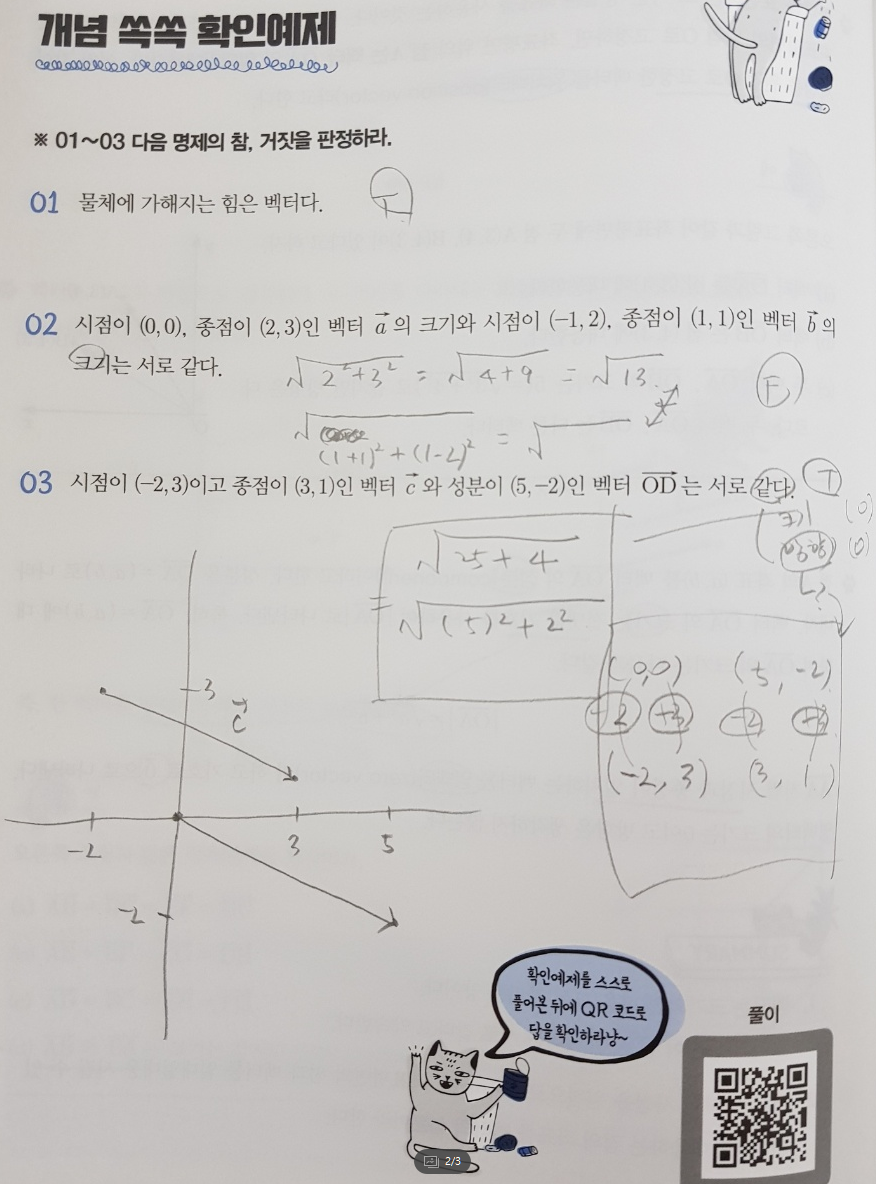 개념 쏙쏙 확인예제
※ 01~03 다음 명제의 참, 거짓을 판정하라.
01 물체에 가해지는 힘은 벡터다. T
02 시점이 (0, 0), 종점이 (2, 3)인 벡터 a⃗ 의 크기와 시점이 (-1, 2), 종점이 (1, 1)인 벡터 b⃗ 의
크기는 서로 같다. √(2²+3²) = √(4+9) = √13 F
√((1+1)²+(1-2)²) = √
03 시점이 (-2, 3)이고 종점이 (3, 1)인 벡터 c⃗ 와 성분이 (5, -2)인 벡터 OD⃗ 는 서로 같다. T
크기 (0)
방향 (0)
√(25+4)
= √((5)²+2²)
(0,0) (5,-2)
-2 +3 -2 +3
(-2, 3) (3, 1)
3
c⃗
-2 3 5
-2
확인예제를 스스로
풀어본 뒤에 QR 코드로
답을 확인하라냥~
풀이
2/3